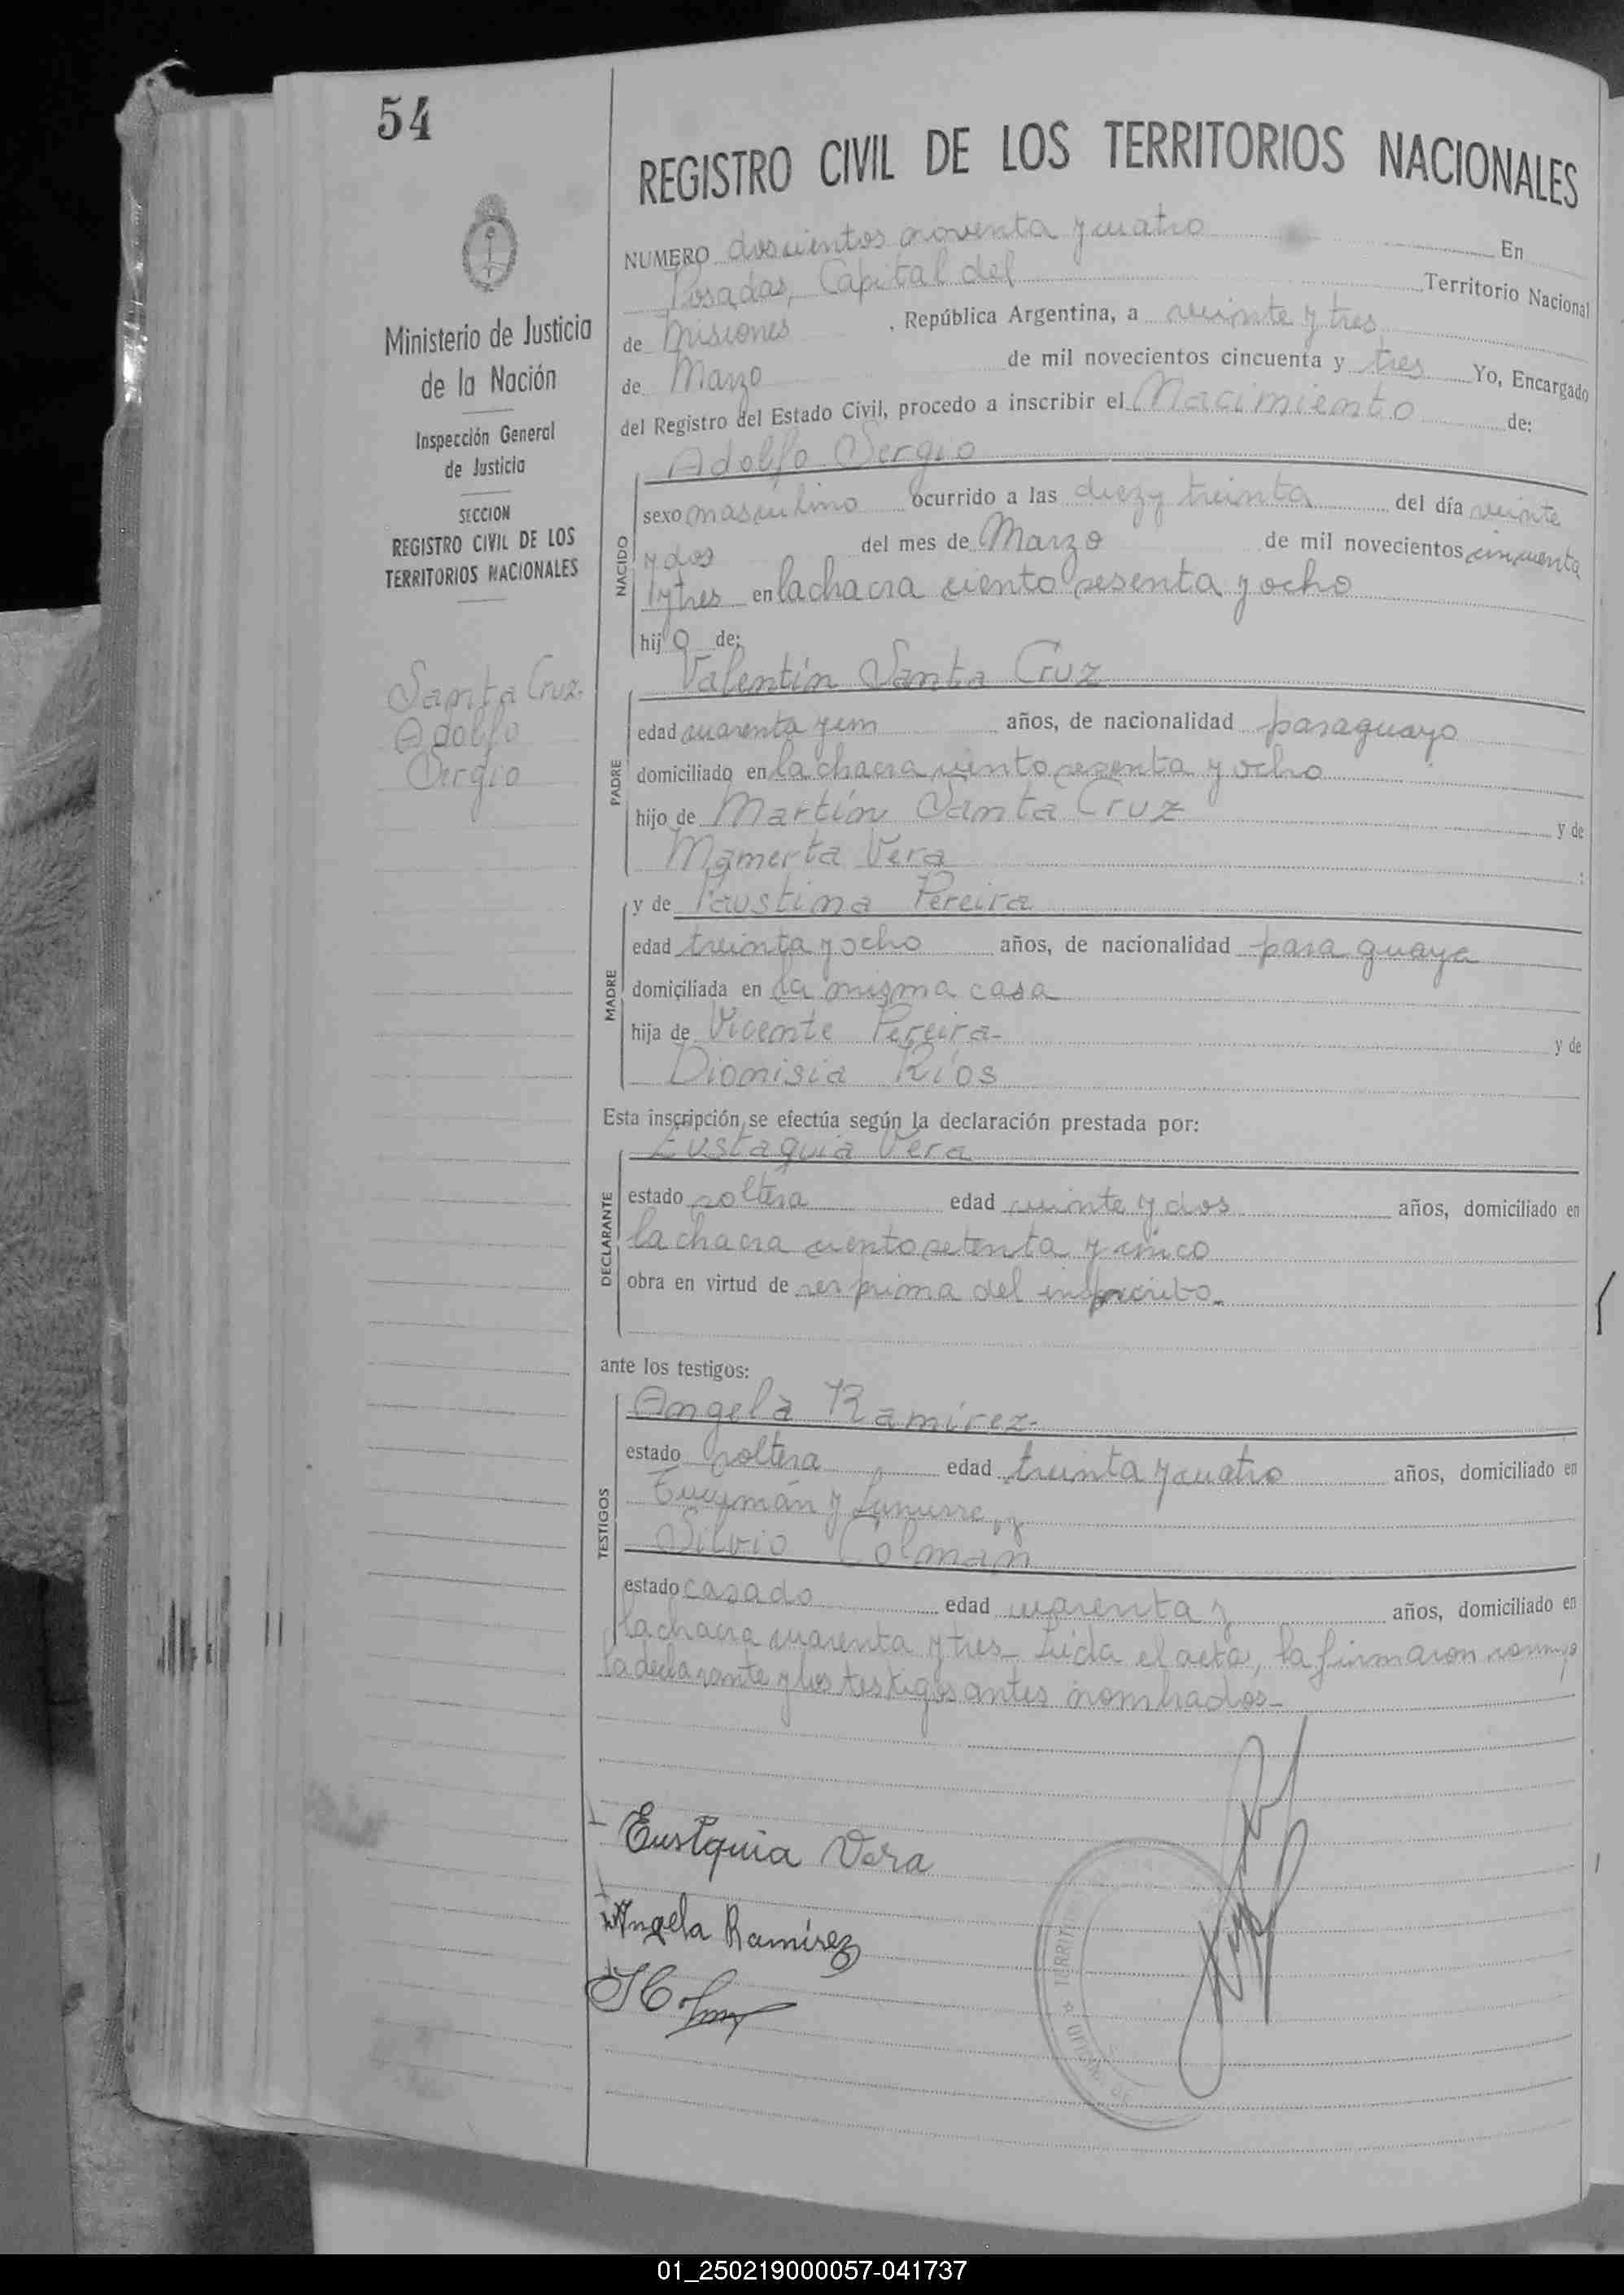 54
REGISTRO CIVIL DE LOS TERRITORIOS NACIONALES
Ministerio de Justicia
de la Nación
Inspección General
de Justicia
SECCION
REGISTRO CIVIL DE LOS
TERRITORIOS NACIONALES
Santa Cruz
Adolfo
Sergio
NUMERO doscientos noventa y cuatro En
Posadas, Capital del Territorio Nacional
de Misiones , República Argentina, a veinte y tres
de Marzo de mil novecientos cincuenta y tres Yo, Encargado
del Registro del Estado Civil, procedo a inscribir el Nacimiento de:
Adolfo Sergio
NACIDO
sexo masculino ocurrido a las diez y treinta del día veinte
y dos del mes de Marzo de mil novecientos cincuenta
y tres en la chacra ciento sesenta y ocho
hijo de:
Valentín Santa Cruz
PADRE
edad cuarenta y un años, de nacionalidad paraguayo
domiciliado en la chacra ciento sesenta y ocho
hijo de Martín Santa Cruz y de
Mamerta Vera :
y de Faustina Pereira
MADRE
edad treinta y ocho años, de nacionalidad paraguaya
domiciliada en la misma casa
hija de Vicente Pereira- y de
Dionisia Ríos
Esta inscripción se efectúa según la declaración prestada por:
Eustaquia Vera
DECLARANTE
estado soltera edad veinte y dos años, domiciliado en
la chacra ciento setenta y cinco
obra en virtud de ser prima del
ante los testigos:
Angela Ramírez-
TESTIGOS
estado soltera edad treinta y cuatro años, domiciliado en
Tucumán y Lanusse, y
Silvio Colman
estado casado edad cuarenta y años, domiciliado en
la chacra cuarenta y tres- Leída el acta, la firmaron conmigo
la declarante y los testigos antes nombrados-
Eustquia Vera
Angela Ramírez
TERRIT
OFICINA DE
01_250219000057-041737